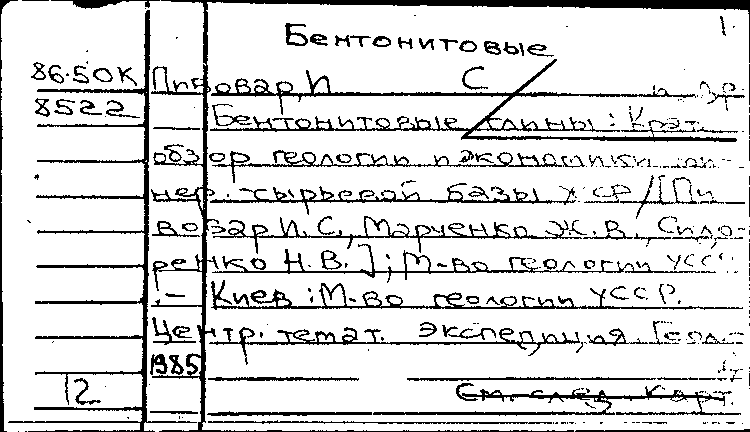 1.
Бентонитовые
86.50К Пивовар, И С и др.
8522 Бентонитовые глины: Крат.
обзор геологии и экономики ми-
нер. сырьевой базы УССР/[Пи
вовар И. С., Марченко Ж. В., Сидо-
ренко Н. В.]; М-во геологии УССР
.— Киев: М-во геологии УССР.
Центр. темат. экспедиция. Геол-
1985
12 См. след. карт.